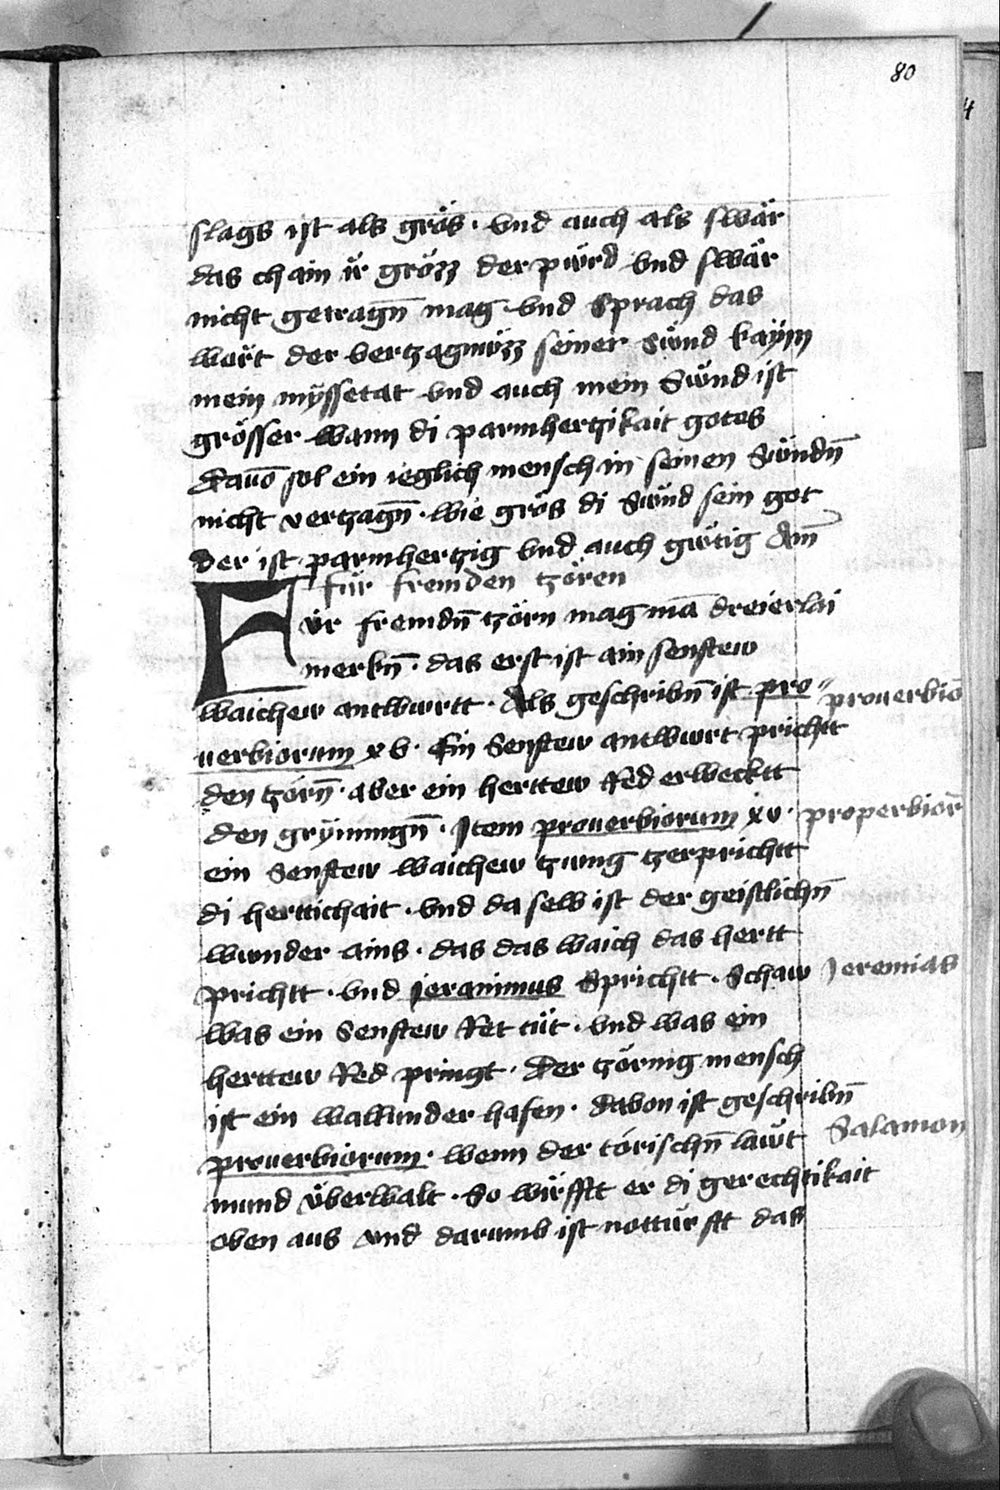 80
slags ist als grös · vnd auch als swär
das chain ir grözz der pürd vnd swär
nicht getragn̄ mag vnd Sprach das
wort der vertzagnüzz seiner Sünd kaÿm
mein mÿssetat vnd auch mein Sünd ist
grösser wann di parmhertzikait gotes
Dauō sol ein ieglich mensch in seinen Sündn̄
nicht vertzagn̄ · wie grös di Sünd sein got
der ist parmhertzig vnd auch gütig Am̄
für fremden tzören
Für fremdn̄ tzörn mag mā dreierlai
merkn̄ · das erst ist ain senftew
waichew antwurtt · Als geschribn̄ ist pro⸗ prouerbiō
uerbiorum xv · Ein Senftew antwurt prichtt
den tzorn̄ · aber ein herttew Red erwecktt
den grÿmmgn̄ · Item prouerbiorum xv · properbior̄
ein Senftew waichew tzung tzerprichtt
di herttichait · vnd da selb ist der geistlichn̄
wunder ains · das das waich das hertt
prichtt · vnd Jeranimus Sprichtt · Schaw Jeremias
was ein Senftew Ret tüt · vnd was ein
herttew Red pringt · Der tzörnig mensch
ist ein wallunder hafen · davon ist geschribn̄
prouerbiorum · wenn der törischn̄ lawt Salamon
mund überwalt · So wirfft er di gerechtikait
oben aus vnd darumb ist notturftt das